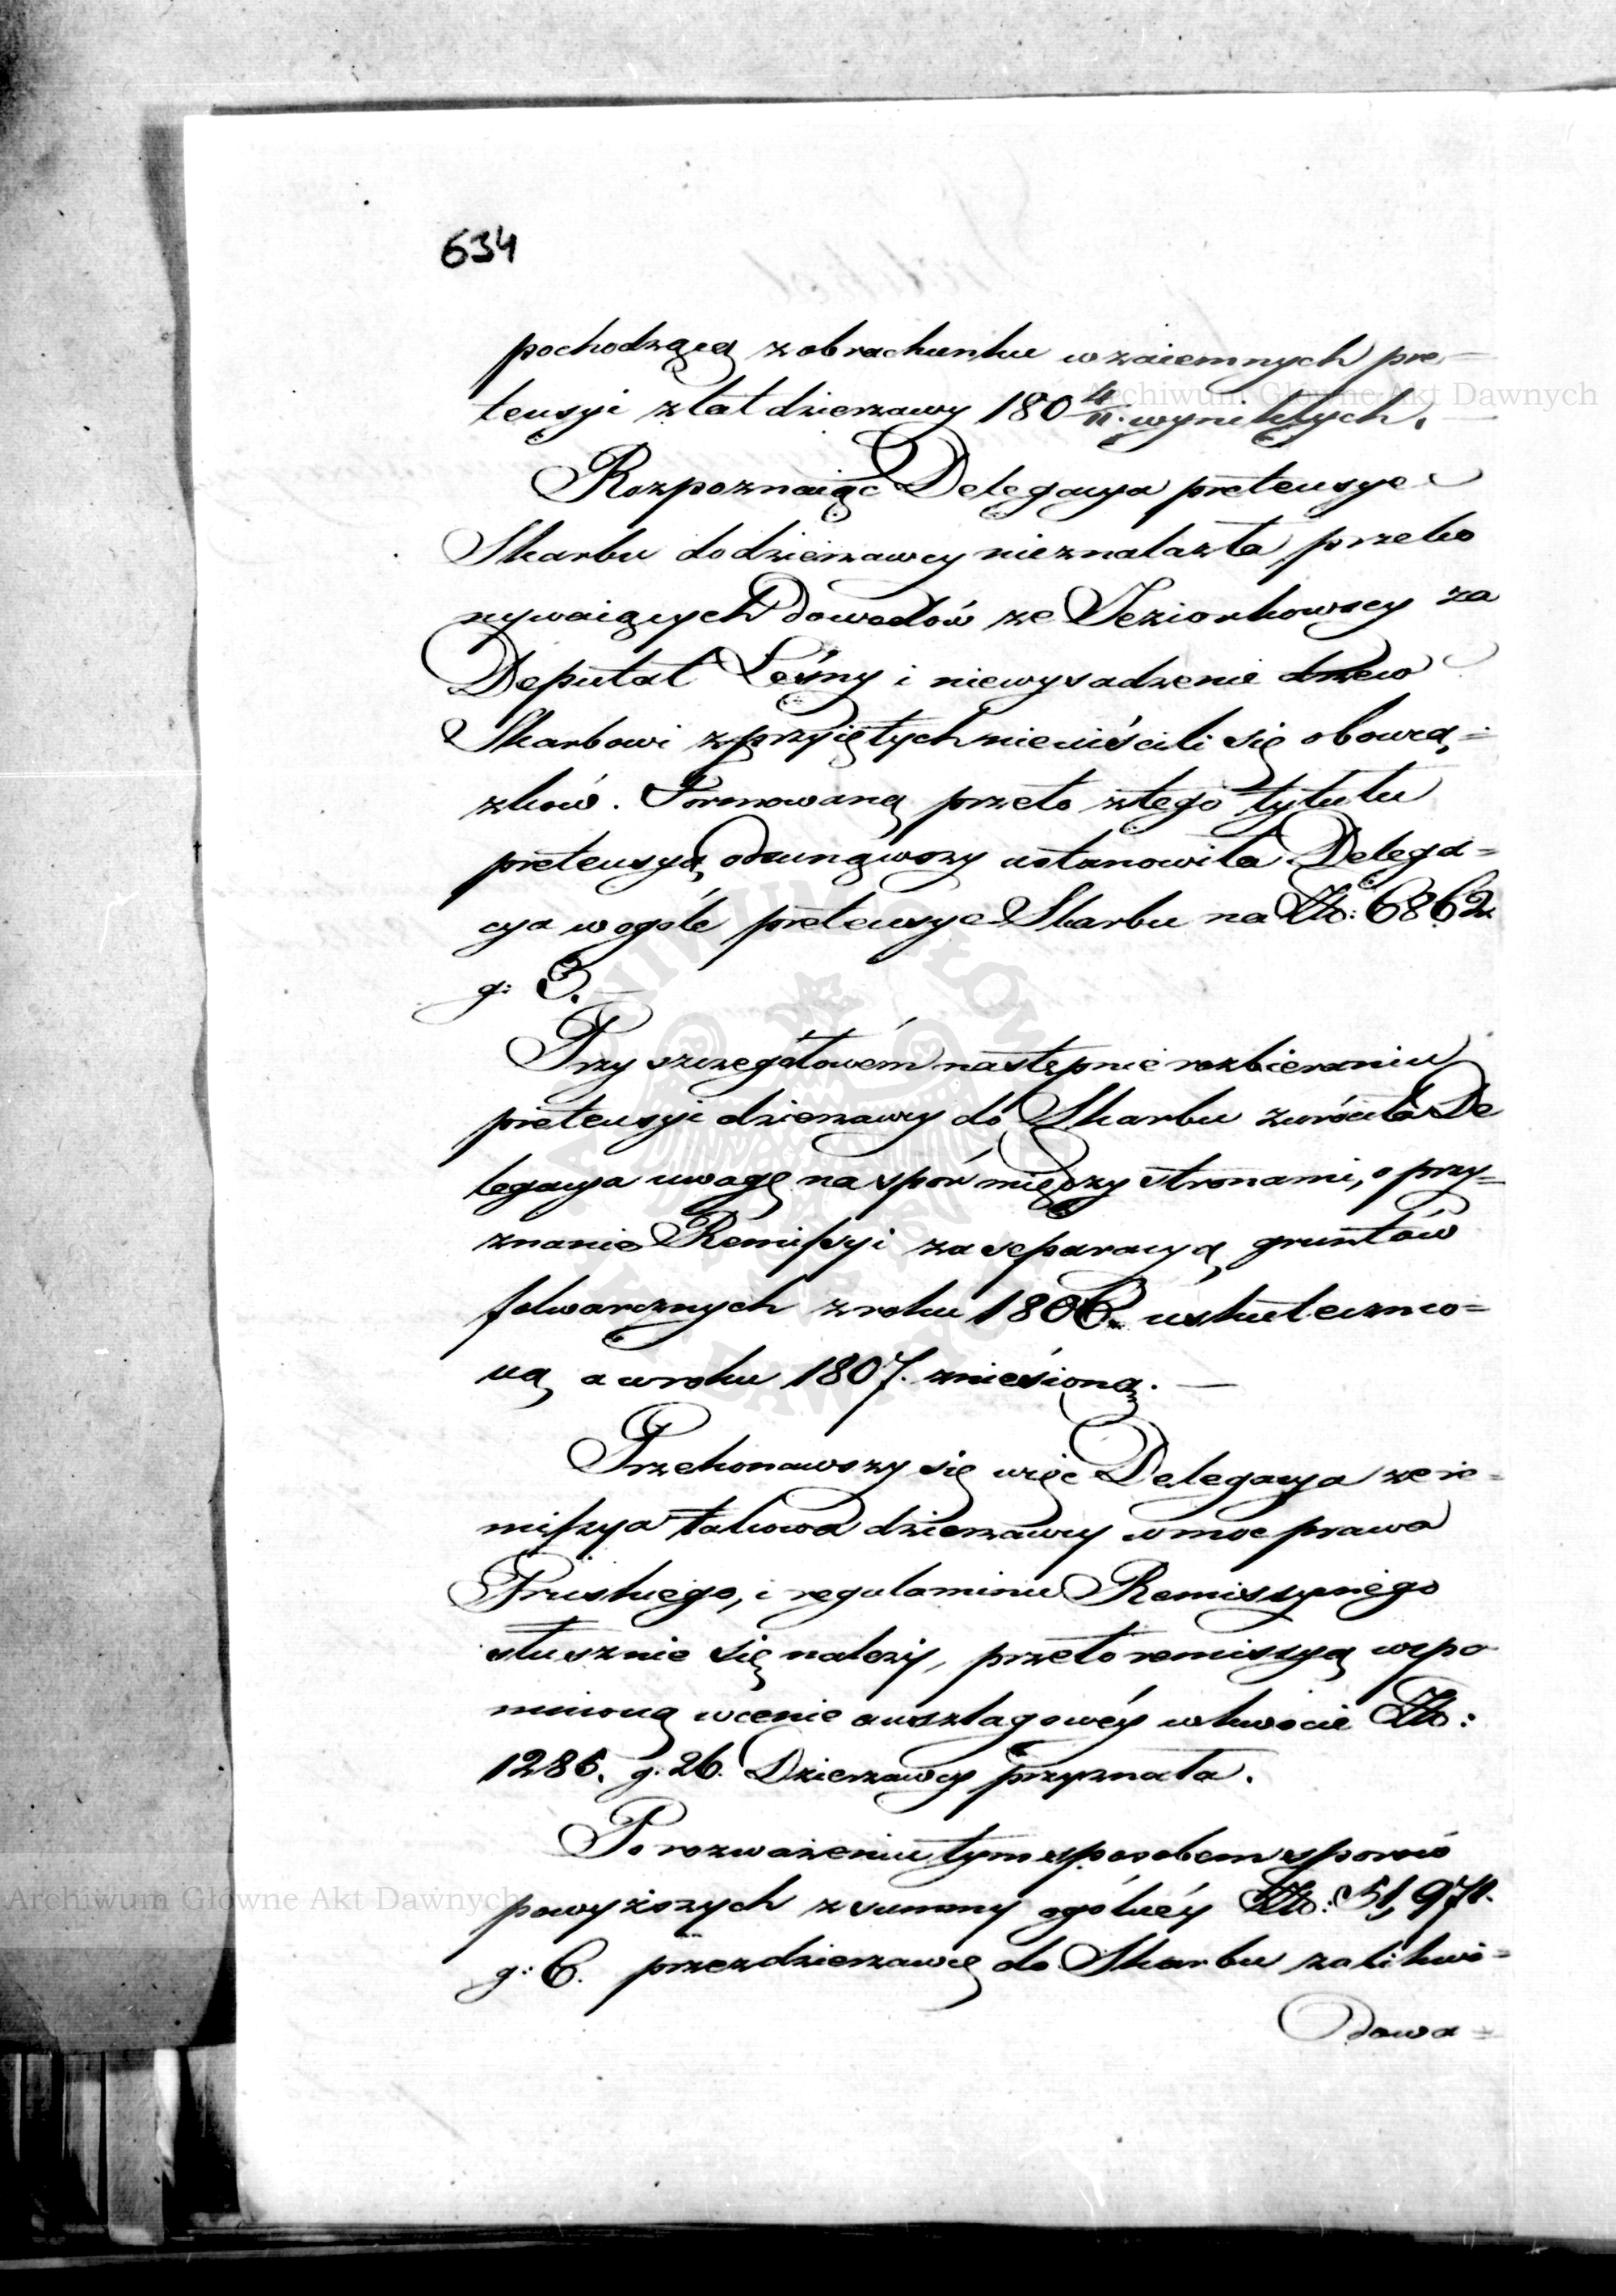 634
pochodzącą z obrachunku wzaiemnych pre-
tensyi z lat dzierzawy 180 4/11. wynikłych.
Rozpoznaiąc Delegacya pretensye
Skarbu do dzierzawcy nieznalazła przeko
nywaiących dowodów ze Jeziorkowscy za
Deputat Leśny i niewysadzenie drzew
Skarbowi z przyiętych nieuiścili się obowią=
zków. Formowaną przeto z tego tytułu
pretensyą odsunąwszy ustanowiła Delega=
cya w ogóle pretensye Skarbu na Zło: 6862.
g: 3.
Przy szczegółowém następnie rozbieraniu
pretensyi dzierzawcy do Skarbu zwróciła De
legacya uwagę na spór między stronami, o przy=
znanie Remissyi za separacyą gruntów
folwarcznych z roku 1806. uskutecznio=
ną a w roku 1807. zniesioną.
Przekonawszy się więc Delegacya ze re=
missya takowa dzierzawcy w moc prawa
Pruskiego, i regulaminu Remissyinego
słusznie się należy, przeto remissyą wspo
mnioną w cenie auszlagowéy w kwocie Zło:
1285. g. 26. Dzierzawcy przyznała.
Po rozważeniu tym sposobem sporów
powyższych z summy ogólnéy Zło: 51,971.
g: 6. przez dzierzawcę do Skarbu zalikwi=
dowa=
Archiwum Główne Akt Dawnych
Archiwum Główne Akt Dawnych